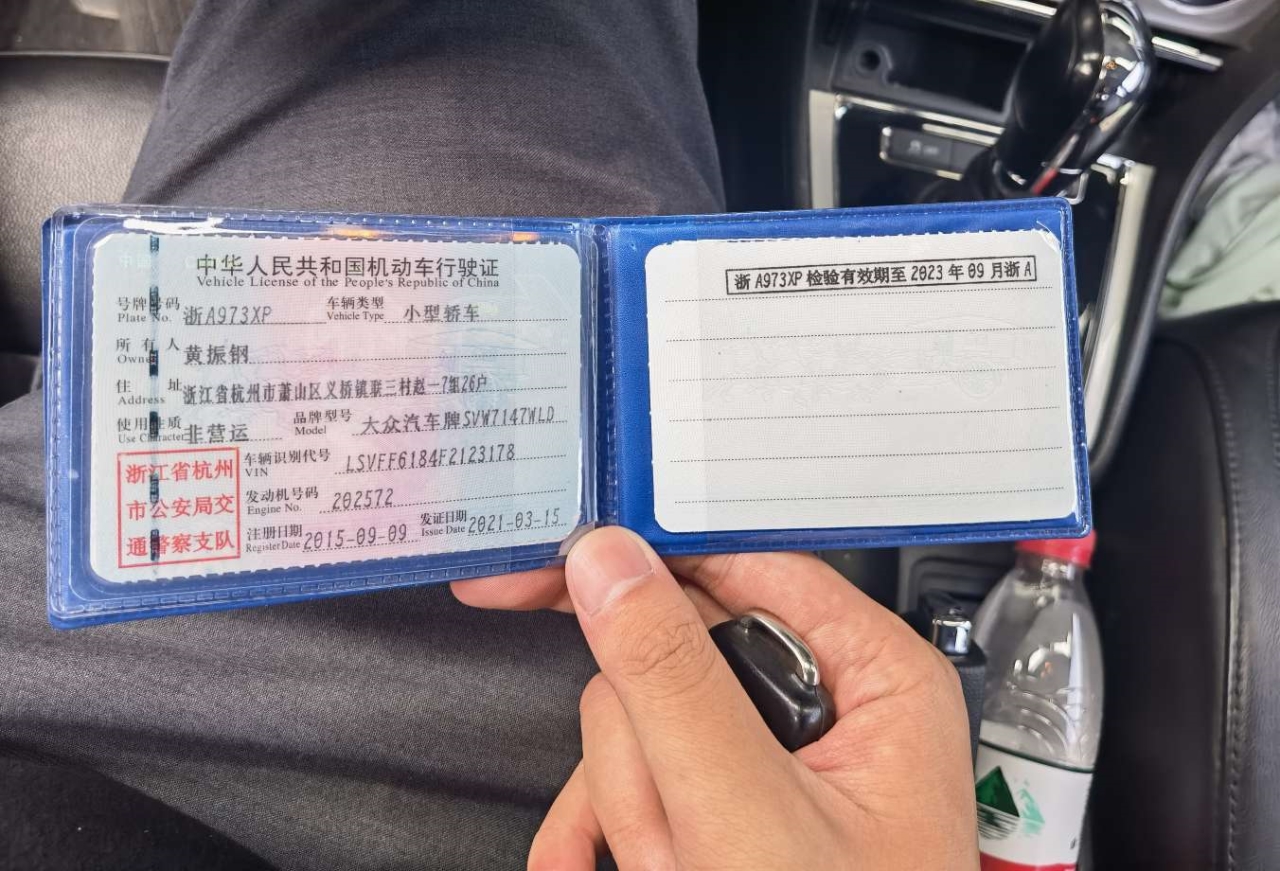 中华人民共和国机动车行驶证
Vehicle License of the People's Republic of China
号牌号码 浙A973XP 车辆类型 小型轿车
Plate No. Vehicle Type
所有人 黄振钢
Owner
住址 浙江省杭州市萧山区义桥镇联三村赵一7组26户
Address
使用性质 非营运 品牌型号 大众汽车牌SVW7147WLD
Use Character Model
浙江省杭州
市公安局交
通警察支队
车辆识别代号 LSVFF6184F2123178
VIN
发动机号码 202572
Engine No.
注册日期 2015-09-09 发证日期 2021-03-15
Register Date Issue Date
浙A973XP检验有效期至2023年09月浙A